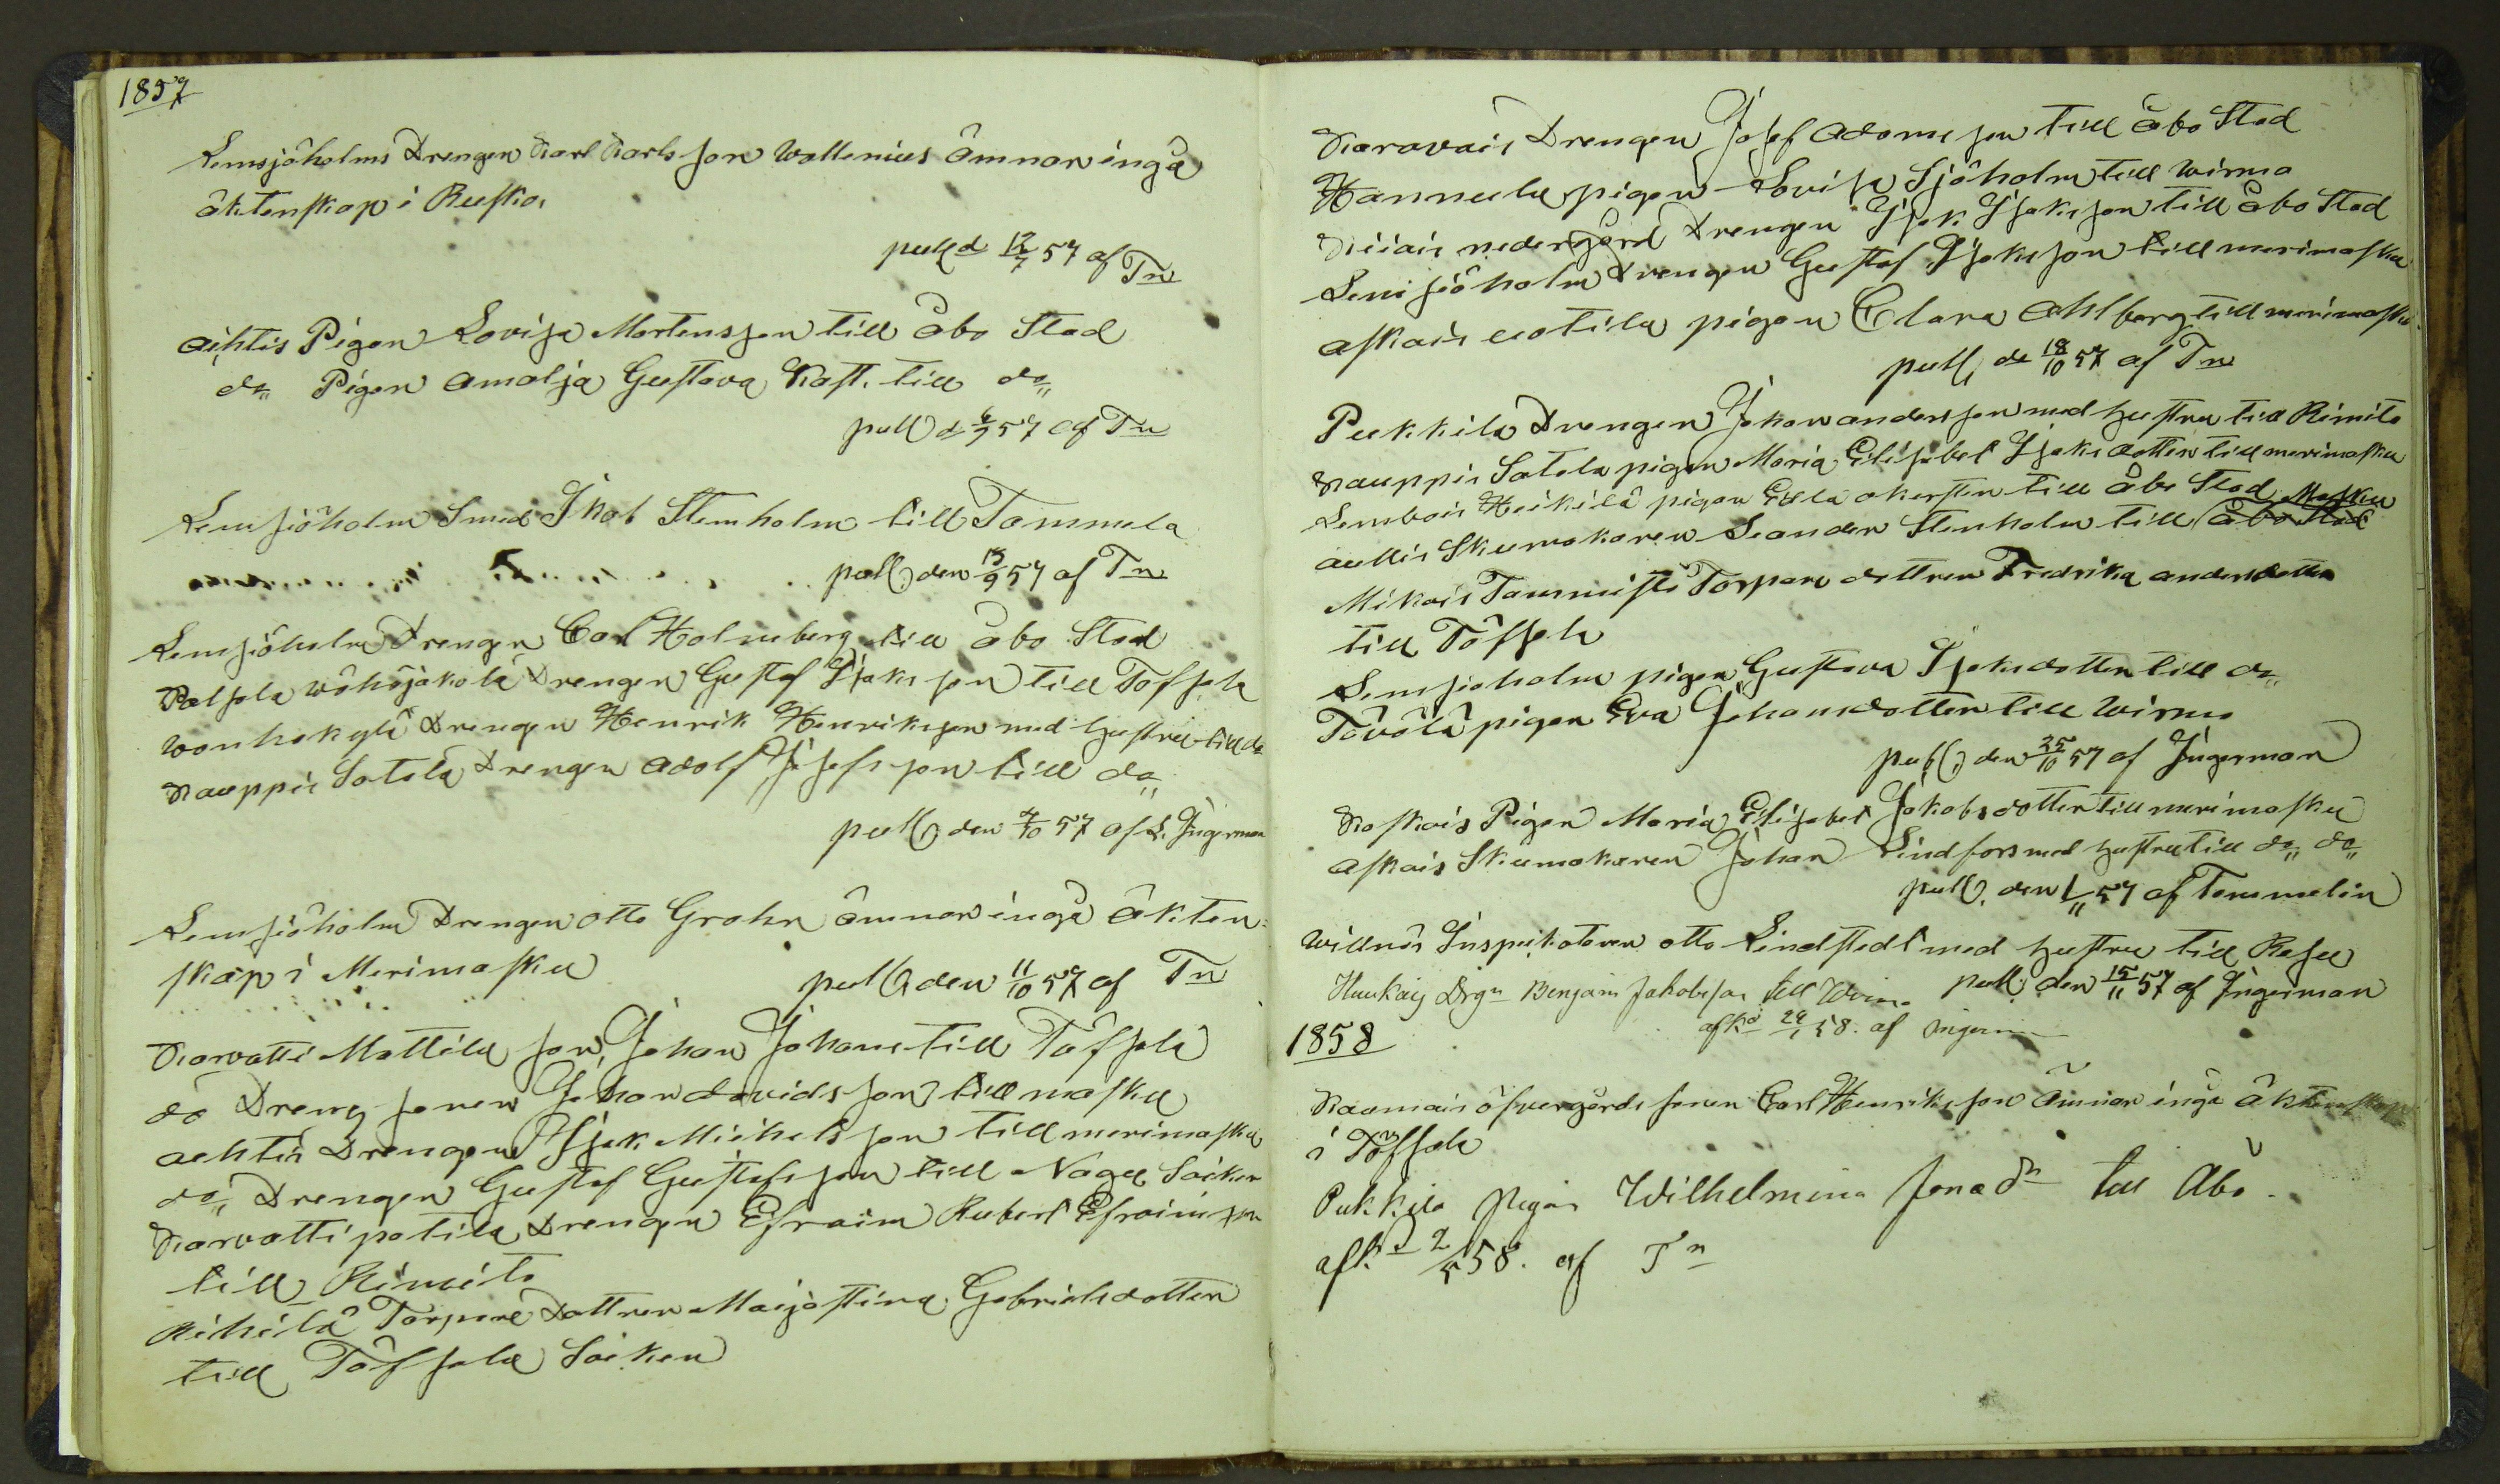 1857
Lemsjöholms Drengen Karl Karlsson Wallenius ämnar ingå
äktenskap i Rusko,
publ d 12/7 57 af Tn
Aihtis Pigan Lovisa Mortensson till Åbo Stad
do Pigan Amalja Gustava Kast. till do
publ d 6/9 57 af Tn
Lemsjöholm Smed Jkob Stenholm till Tammela
publ, den 13/9 57 af Tn
Lemsjöholm Drengen Carl Holmberg till Åbo Stad
Palsola wähäjakola Drengen Gustaf Isaksson till Töfsala
wanhakylä Drengen Henrik Henriksson med hustru till do
Kauppis Satola Drengen Adolf Josefsson till do
publ, den 4/10 57 af L. Ingerman
Lemsjöholm Drengen Otto Grohn ämnar ingå äkten-
skap i Merimasku
publ, den 11/10 57 af Tn
Karvatti Mattila son, Johan Johans till Töfsala
do Dreng sonen Johan Davidsson till masku
aehtis Drengen Isak Michelsson till merimasku
do Drengen Gustaf Gustafsson till Nagu Soiken
Karvatti potila Drengen Efraim Robert Efraimsson
till Rimito
Rihilä Torpare Dottren Maijastina Gabrielsdotter
till Töfsala Soiken
Karavais Drengen Josef Adamsson till Åbo Stad
Hannula pigan Lovisa Sjöholm till wirmo
Kiiais nedergård Drengen Isak Isaksson till Åbo Stad
Lemsjöholm Drengen Gustaf Isaksson till merimasku
Askais uotila pigan Clara Ahlberg till merimasku
publ, de 18/10 57 af Tn
Pukkila Drengen Johan andersson med hustru till Rimito
Kauppis Satola pigan Maria Elisabet Isaks dotter till merimasku
Lembois Heikilä pigan Edla akersten till Åbo Stad
Masku
autis Skumakaren Leander Stenholm till Åbo Stad
Mikais Tammisto Torpare dottren Fredrika andersdotter
till Töfsala
Lemsjoholm pigan Gustava Isaksdotter till do
Tövölä pigan Eva Johansdotter till wirmo
publ, den 25/10 57 af Ingerman
Koskois Pigan Maria Elisabet Jakobsdotter till merimasku
Askais Skumakaren Johan Lindfors med hustru till do do
publ, den 1/11 57 af Tammelin
Willnäs Inspektoren otto Lindstedt med hustru till Reso
publ, den 15/11 57 af Ingerman
Huukais Drgn Benjam Jakobsson till Wirmo
afkd 24/1 58. af Ingerm
1858
Kaamais öfvergårds sonen Carl Henriksson ämnar ingå äktenskap
i Töfsala
Pukkila pigan Wilhelmina Jonadn till Åbo.
afkd 2/5 58. af Tn